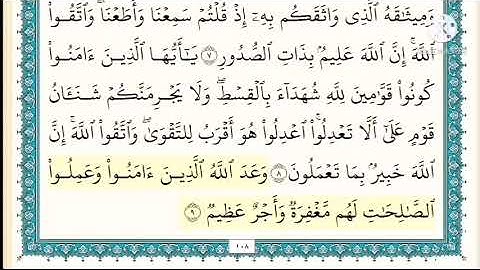 وَمِيثَٰقَهُ ٱلَّذِى وَاثَقَكُم بِهِۦٓ إِذْ قُلْتُمْ سَمِعْنَا وَأَطَعْنَا ۖ وَٱتَّقُوا۟
ٱللَّهَ ۚ إِنَّ ٱللَّهَ عَلِيمٌۢ بِذَاتِ ٱلصُّدُورِ ٧ يَٰٓأَيُّهَا ٱلَّذِينَ ءَامَنُوا۟
كُونُوا۟ قَوَّٰمِينَ لِلَّهِ شُهَدَآءَ بِٱلْقِسْطِ ۖ وَلَا يَجْرِمَنَّكُمْ شَنَـَٔانُ
قَوْمٍ عَلَىٰٓ أَلَّا تَعْدِلُوا۟ ۚ ٱعْدِلُوا۟ هُوَ أَقْرَبُ لِلتَّقْوَىٰ ۖ وَٱتَّقُوا۟ ٱللَّهَ ۚ إِنَّ
ٱللَّهَ خَبِيرٌۢ بِمَا تَعْمَلُونَ ٨ وَعَدَ ٱللَّهُ ٱلَّذِينَ ءَامَنُوا۟ وَعَمِلُوا۟
ٱلصَّٰلِحَٰتِ ۙ لَهُم مَّغْفِرَةٌ وَأَجْرٌ عَظِيمٌ ٩
١٠٨